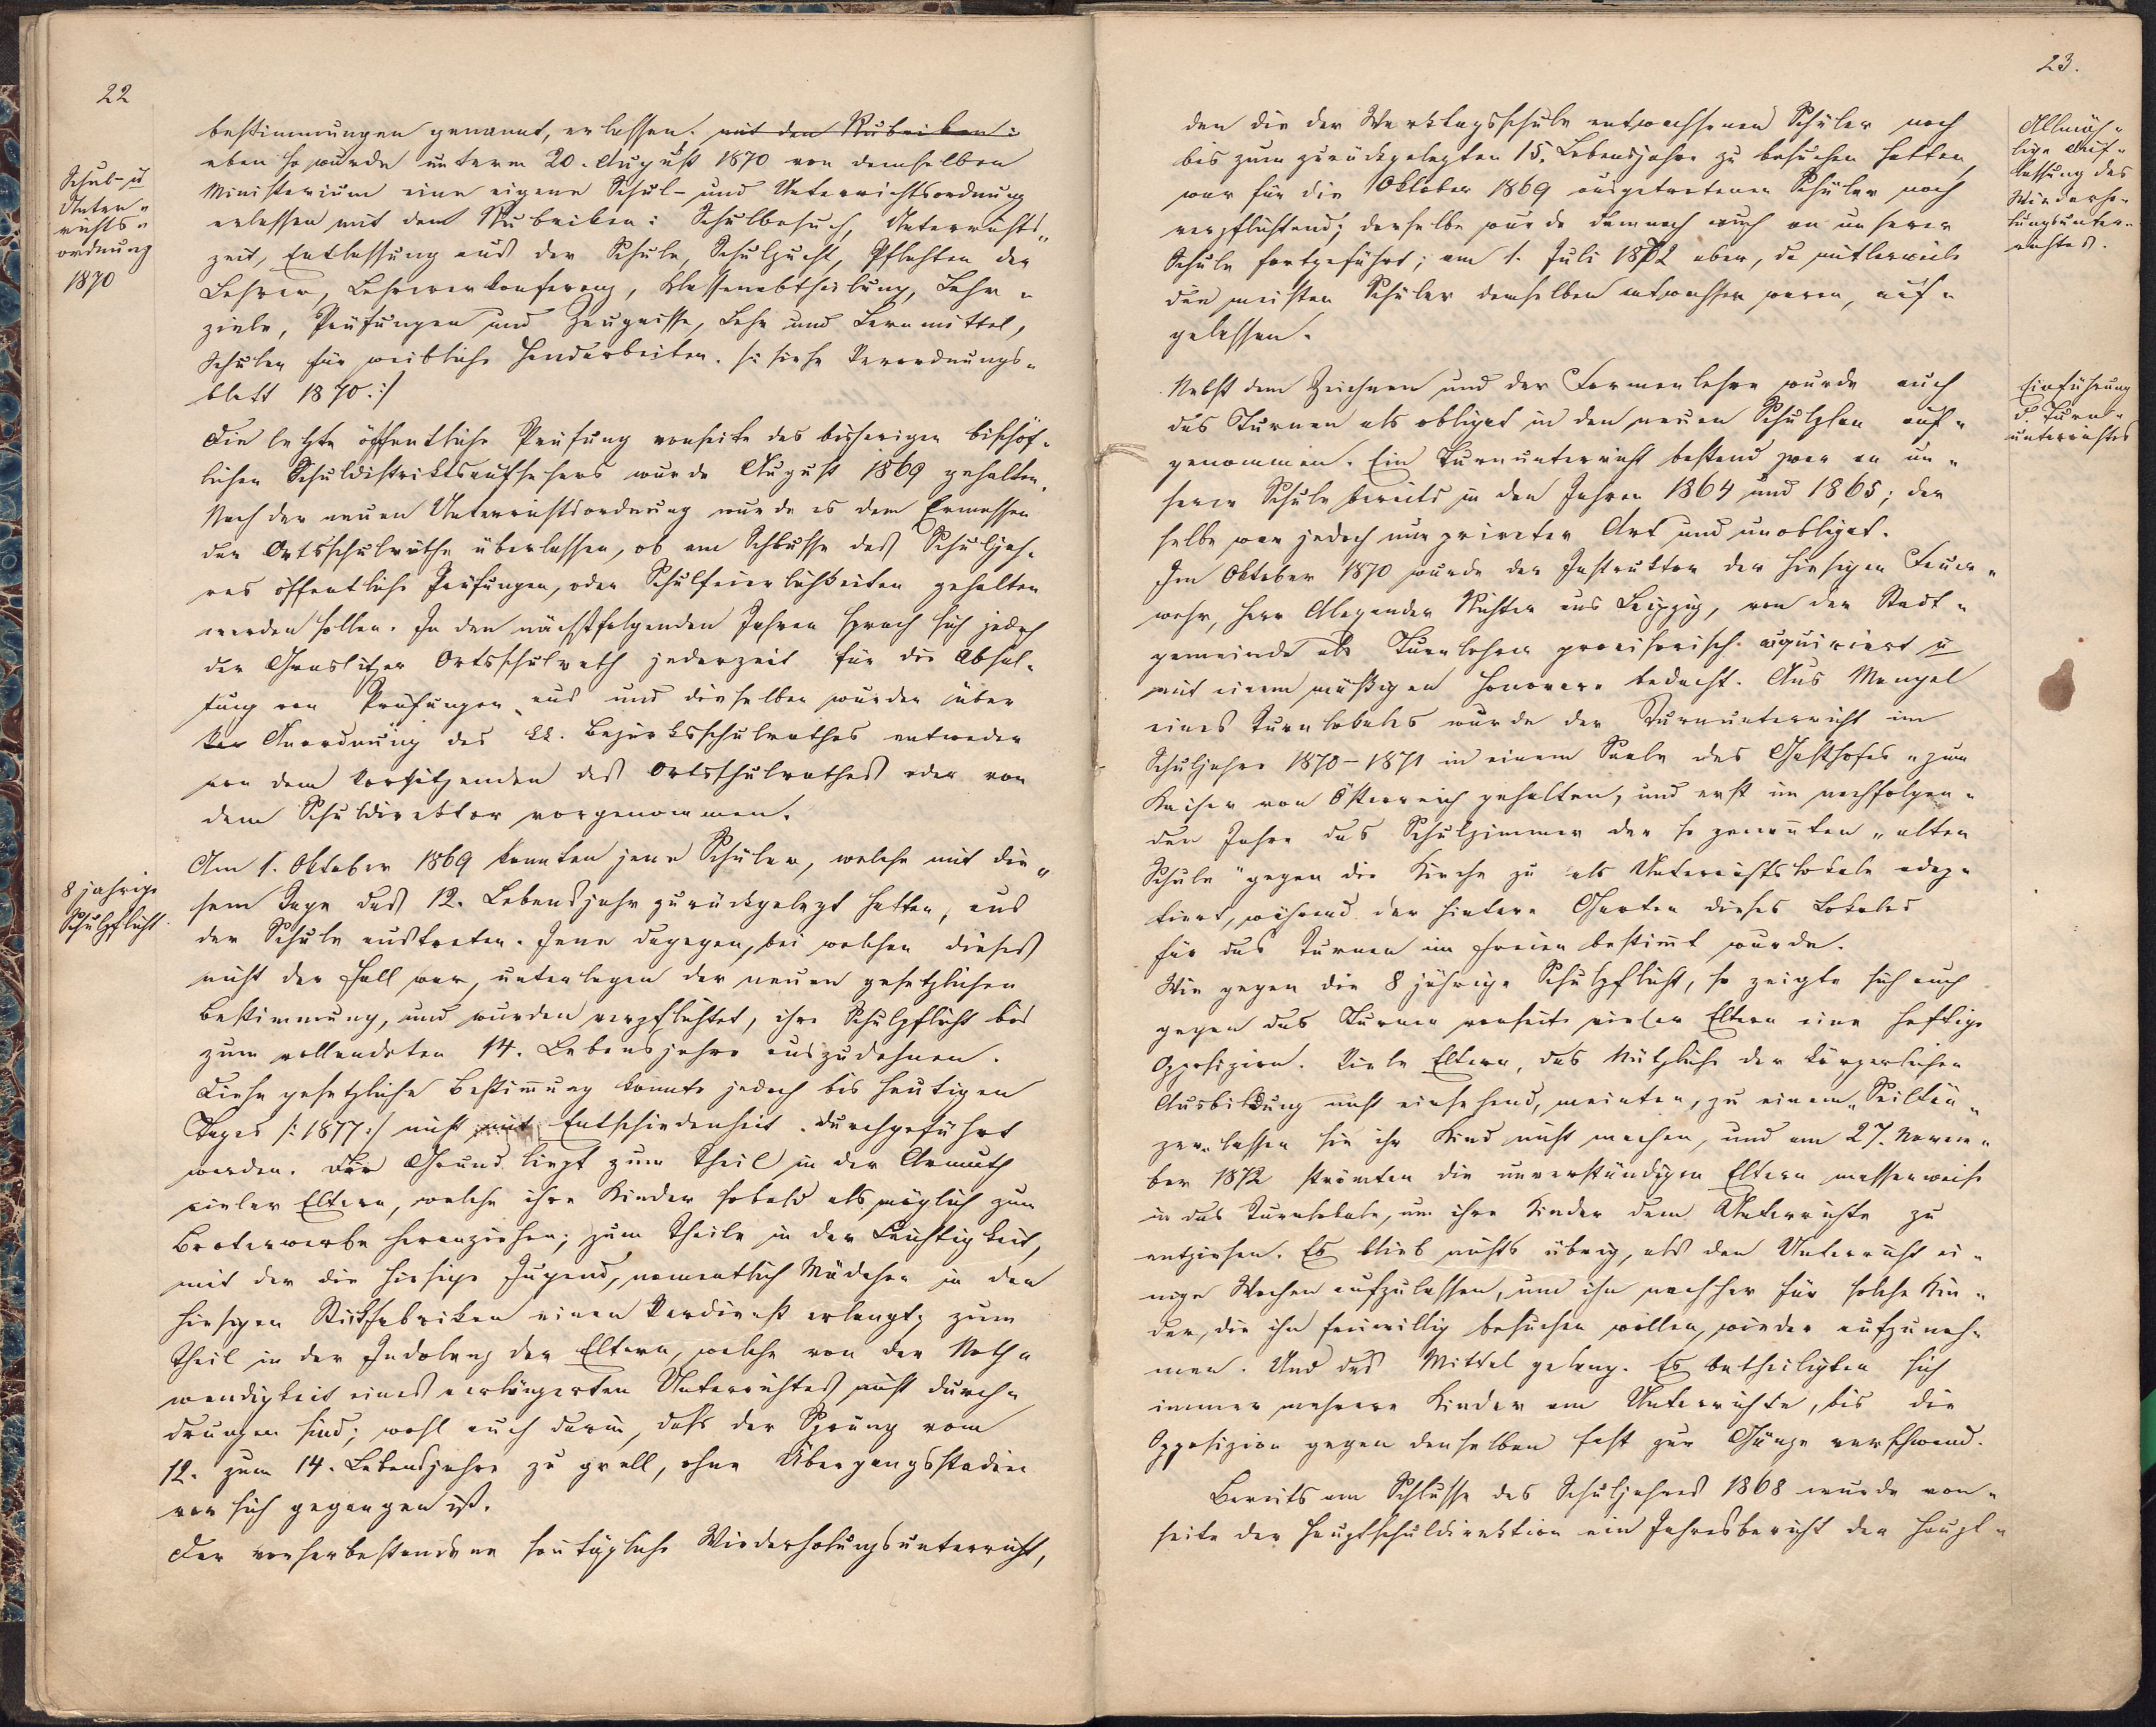 22
bestimmungen genannt, erlassen. mit den Rubriken:
eben so wurde unterm 20. August 1870 von demselben
Schul- u
Unter-
richts-
ordnung
1870
Ministerium eine eigene Schul- und Unterrichtsordnung
erlassen mit den Rubriken: Schulbesuch, Unterrichts-
zeit, Entlassung aus der Schule, Schulzucht, Pflichten der
Lehrer, Lehrerkonferenz, Klassenabtheilung, Lehr-
ziele, Prüfungen und Zeugnisse, Lehr und Lernmittel,
Schulen für weibliche Handarbeiten. /: siehe Verordnungs-
blatt 1870 :/
Die letzte öffentliche Prüfung vonseite des bisherigen bischöf-
lichen Schuldistriktsaufsehers wurde August 1869 gehalten.
Nach der neuen Unterrichtsordnung wurde es dem Ermessen
der Ortsschulräthe überlassen, ob am Schlusse des Schuljah-
res öffentliche Prüfungen, oder Schulfeierlichkeiten gehalten
werden sollen. In den nächstfolgenden Jahren sprach sich jedoch
der Graslitzer Ortsschulrath jederzeit für die Abhal-
tung von Prüfungen aus und dieselben wurden über
Anordnung des kk. Bezirksschulrathes entweder
von dem Vorsitzenden des Ortsschulrathes oder von
dem Schuldirektor vorgenommen.
8 jährige
Schulpflicht
Am 1. Oktober 1869 konnten jene Schüler, welche mit die-
sem Tage das 12. Lebensjahr zurückgelegt hatten, aus
der Schule austreten. Jene dagegen, bei welchen dieses
nicht der Fall war, unterlagen der neuen gesetzlichen
Bestimmung, und wurden verpflichtet, ihre Schulpflicht bis
zum vollendeten 14. Lebensjahre auszudehnen.
Diese gesetzliche Bestim̄ung konnte jedoch bis heutigen
Tages /: 1877 :/ nicht mit Entschiedenheit durchgeführt
werden. Der Grund liegt zum Theil in der Armuth
vieler Eltern, welche ihre Kinder sobald als möglich zum
Broterwerbe heranziehen; zum Theile in der Leichtigkeit,
mit der die hiesige Jugend, namentlich Mädchen in den
hiesigen Stickfabriken einen Verdienst erlangt; zum
Theil in der Indolenz der Eltern, welche von der Noth-
wendigkeit eines verlängerten Unterrichtes nicht durch-
drungen sind; wohl auch darin, daß der Sprung vom
12. zum 14. Lebensjahre zu grell, ohne Übergangsstadien
vor sich gegangen ist.
Der vorherbestandene son̄tägliche Wiederholungsunterricht,
23.
den die der Werktagsschule entwachsenen Schüler noch
bis zum zurückgelegten 15. Lebensjahre zu besuchen hatten,
war für die 1 Oktober 1869 ausgetretenen Schüler noch
verpflichtend; derselbe wurde demnach auch an unserer
Schule fortgeführt; am 1. Juli 1872 aber, da mitlerweile
die meisten Schüler demselben entwachsen waren, auf-
gelassen.
Allmäh-
lige Auf-
lassung des
Wiederho-
lungsunter-
richtes.
Nebst dem Zeichnen und der Formenlehre wurde auch
das Turnen als obligat in den neuen Schulplan auf-
genommen. Ein Turnunterricht bestand zwar an un-
serer Schule bereits in den Jahren 1864 und 1865; der
selbe war jedoch nur privater Art und unobligat.
Einführung
d. Turn-
unterrichtes
Im Oktober 1870 wurde der Instruktor der hiesigen Feuer-
wehr, Herr Alexander Richter aus Leipzig, von der Stadt-
gemeinde als Turnlehrer provisorisch aquiriert u
mit einem mäßigen Honorare bedacht. Aus Mangel
eines Turnlokales wurde der Turnunterricht im
Schuljahre 1870-1871 in einem Saale des Gasthofes „zum
Kaiser von Österreich gehalten, und erst im nachfolgen-
den Jahre das Schulzimmer der so genan̄ten „alten
Schule" gegen die Kirche zu als Unterrichtslokale adap-
tiert, während der hintere Garten dieses Lokales
für das Turnen im Freien bestim̄t wurde.
Wie gegen die 8 jährige Schulpflicht, so zeigte sich auch
gegen das Turnen vonseite vieler Eltern eine heftige
Opposizion. Viele Eltern, das Nützliche der körperlichen
Ausbildung nicht einsehend, meinten, zu einem „Seiltän-
zer" lassen sie ihr Kind nicht machen, und am 27. Novem-
ber 1872 strömten die unverständigen Eltern massenweise
in das Turnlokale, um ihre Kinder dem Unterrichte zu
entziehen. Es blieb nichts übrig, als den Unterricht ei-
nige Wochen aufzulassen, um ihn nachher für solche Kin-
der, die ihn freiwillig besuchen wollen, wieder aufzuneh-
men. Und das Mittel gelang. Es betheiligten sich
immer mehrere Kinder am Unterrichte, bis die
Opposizion gegen denselben fast zur Gänze verschwand.
Bereits am Schlusse des Schuljahres 1868 wurde von-
seite der Hauptschuldirektion ein Jahresbericht der Haupt-